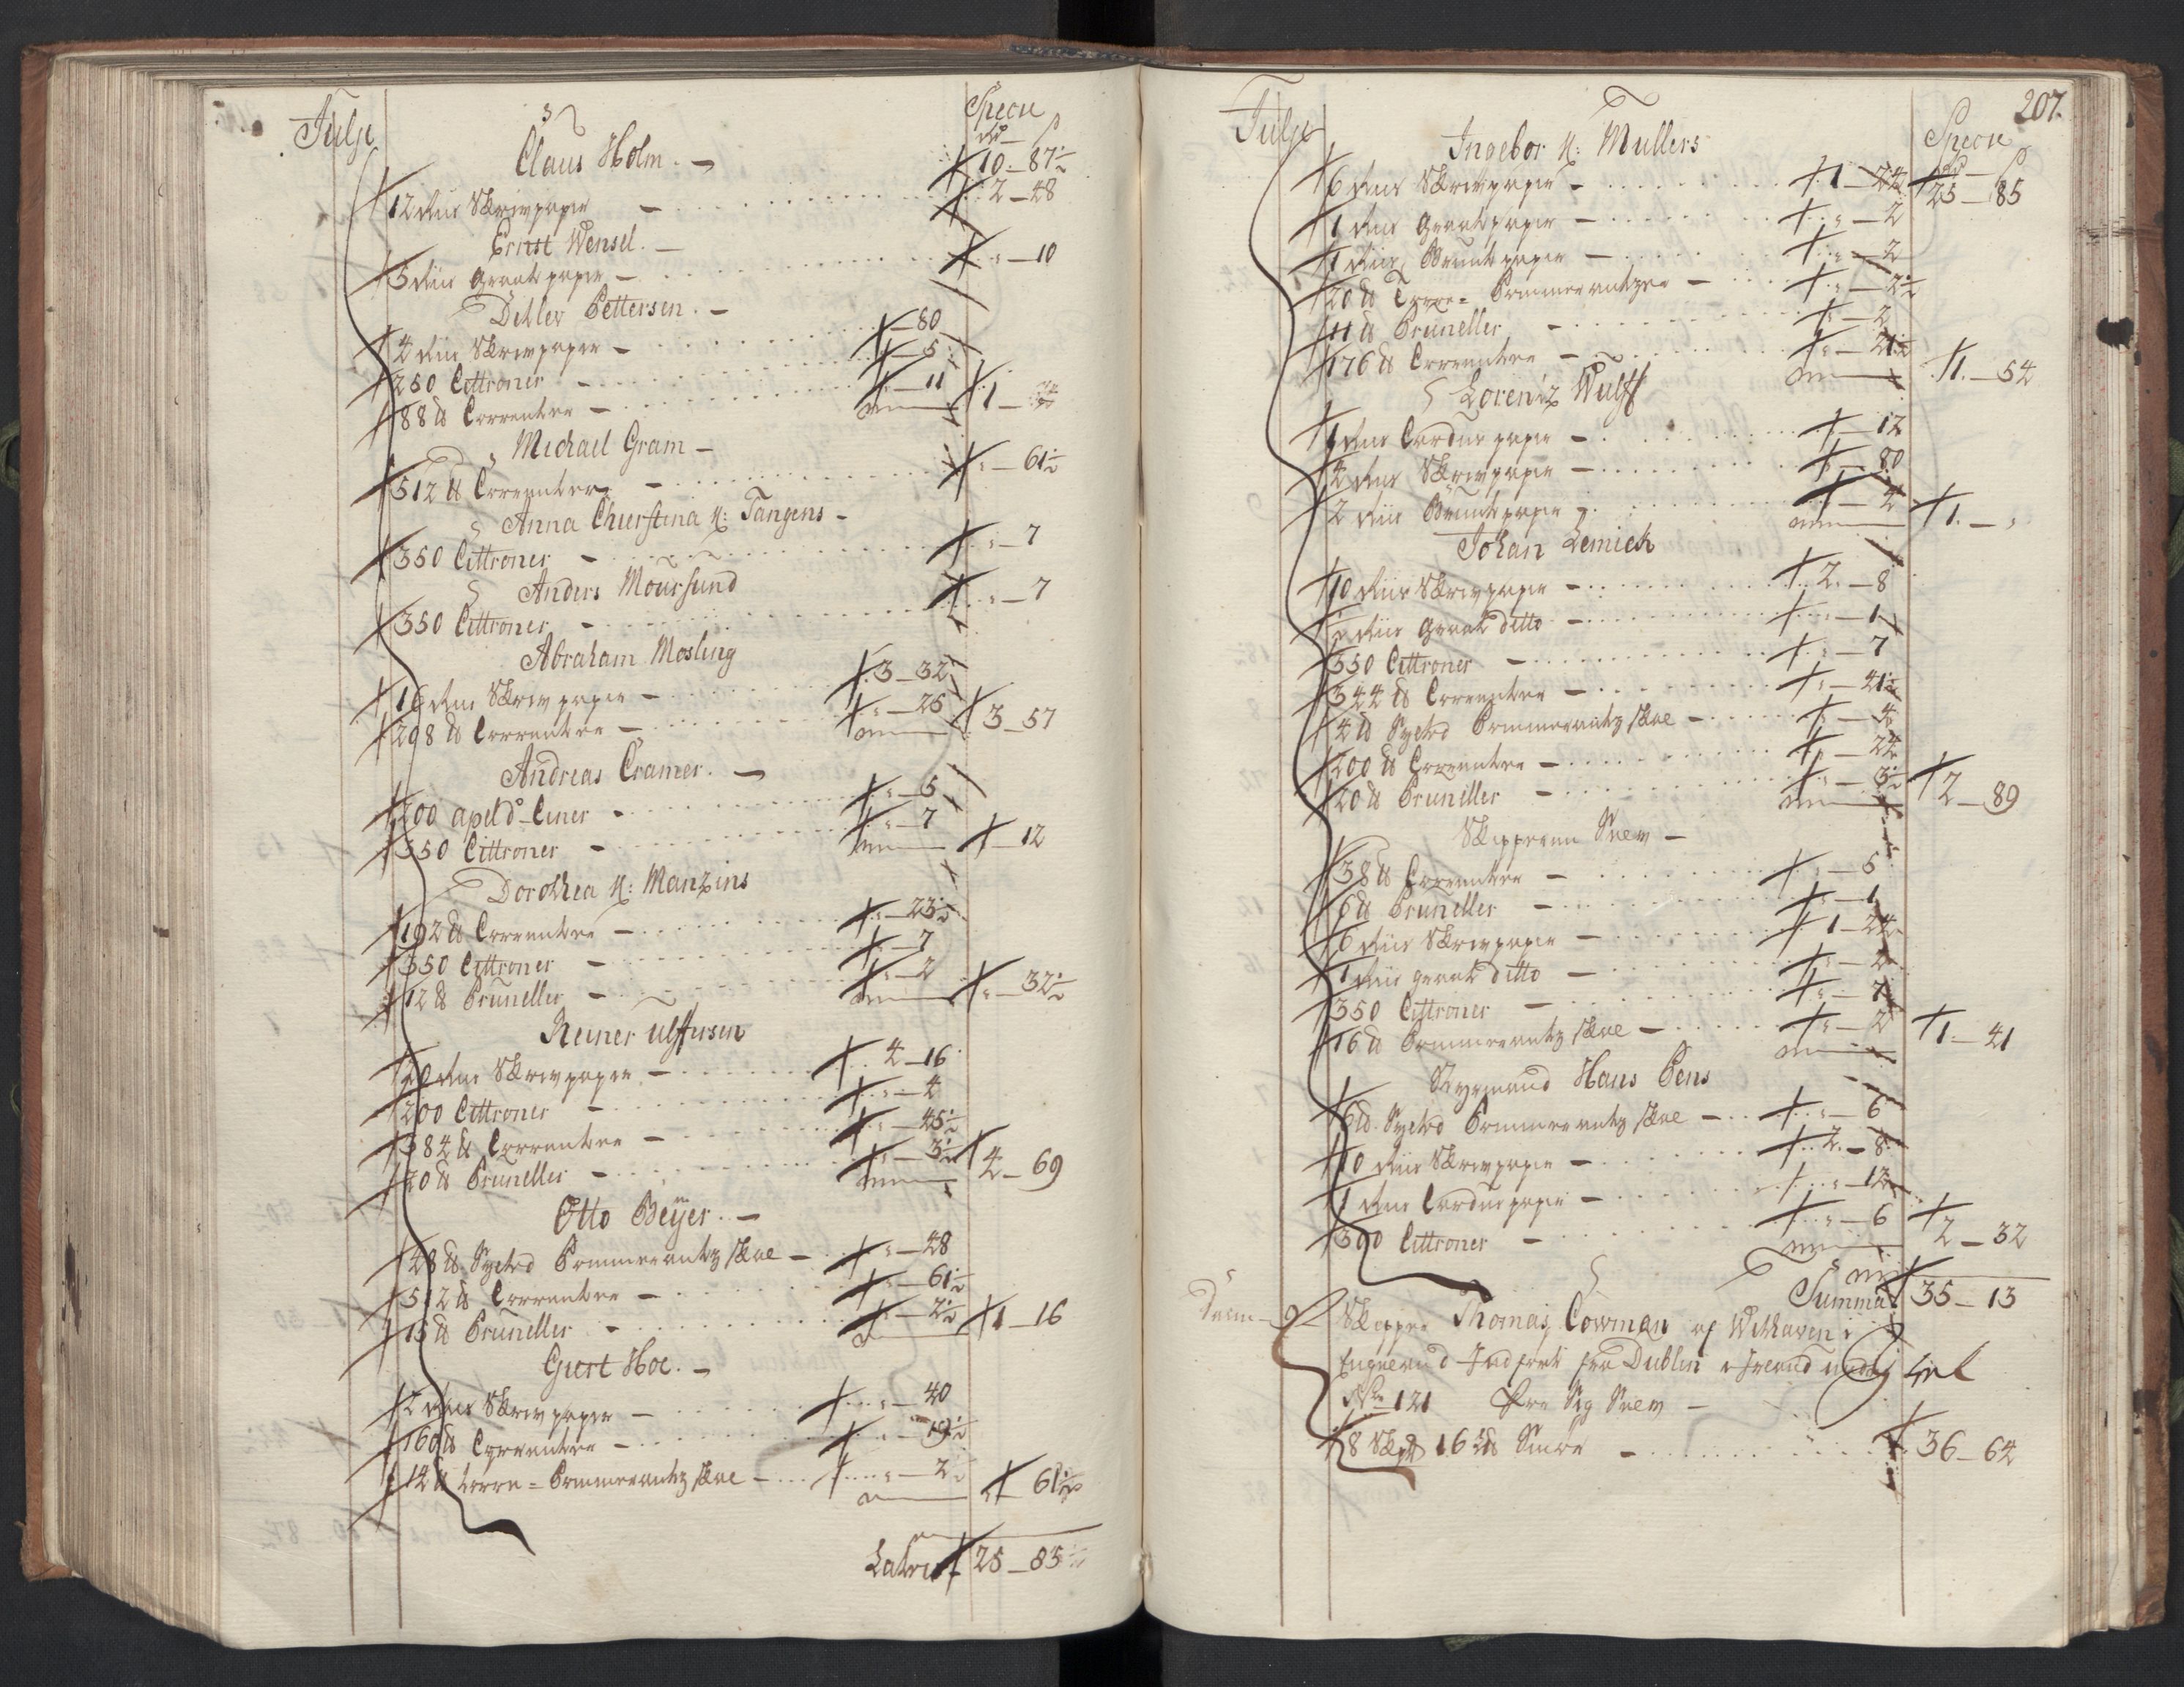 Julii
Specie
rd ß
Claus Holm.
10 - 87½
12 Riis Skrivpapir - 2 - 48
Ernst Wensel.
5 Riis Graat papir - " - 10
Detlev Pettersen.
4 Riis Skrivpapir - " - 80
250 Cittroner - " - 5
88 ℔ Correnter - " - 11
1 -
Michael Gram -
512 ℔ Correnter - " - 61½
Anna Chierstina N: Tangens -
350 Cittroner - " - 7
Anders Moursund
350 Cittroner - " - 7
Abraham Mosling
16 Riis Skrivpapir - 3 - 32
208 ℔ Correnter - " - 25
3 - 57
Andreas Cramer.
200 apeld=Ciner - " - 5
350 Cittroner - " - 7
" - 12
Dorothea N: Manzins
192 ℔ Correnter - " - 23½
350 Cittroner - " - 7
12 ℔ Pruneller - " - 2
" - 32½
Reiner Ulffersen
20 Riis Skrivpapir - 4 - 16
200 Cittroner - " - 4
384 ℔ Correnter - " - 45½
20 ℔ Pruneller - " - 3½
4 - 69
Otto Beÿer.
48 ℔ Sylted Pommerantz skal - " - 48
512 ℔ Correnter - " - 61½
15 ℔ Pruneller - " - 2½
1 - 16
Giert Hoe.
2 Riis Skrivpapir - " - 40
160 ℔ Correnter - " - 19½
14 ℔ torre=Pommerantz skal - " - 2
" - 61½
Latus 25 - 85
207.
Julii
Specie
rd ß
Ingebor N: Mullers
25 - 85
6 Riis Skrivpapir - 1 - 24
1 Riis Graatpapir - " - 2
1 Riis Bruntpapir - " - 2
20 ℔ Torre= Pommerantzer - " - 2½
11 ℔ Pruneller - " - 2
176 ℔ Correnter - " - 21½
1 - 54
Lorentz Wulff
1 Riis Carduspapir - " - 12
4 Riis Skrivpapir - " - 80
2 Riis Bruntpapir - " - 4
1 - "
Johan Lemick
10 Riis Skrivpapir - 2 - 8
½ Riis Graat ditto - " - 1
350 Cittroner - " - 7
344 ℔ Correnter - " - 41½
4 ℔ Sylted Pommerantz skal - " - 4
200 ℔ Correnter - " - 24
20 ℔ Pruneller - " - 3½
2 - 89
Skipperen Snew -
38 ℔ Correnter - " - 5
6 ℔ Pruneller - " - 1
6 Riis Skrivpapir - 1 - 24
1 Riis graat ditto - " - 2
350 Cittroner - " - 7
16 ℔ Pommerantz skal - " - 2
1 - 41
Styrmand Hans Pens
6 ℔ Sylted Pommerantz skal - " - 6
10 Riis Skrivpapir - 2 - 8
1 Riis Carduspapir - " - 12
300 Cittroner - " - 6
2 - 32
Summa 35 - 13
Skipper Thomas Cowman af Withaven i
Engeland Indført fra Dublin i Irland
No 121 Pro Sig Snew -
8 Skpd 16 ℔ Smør - 36 - 64